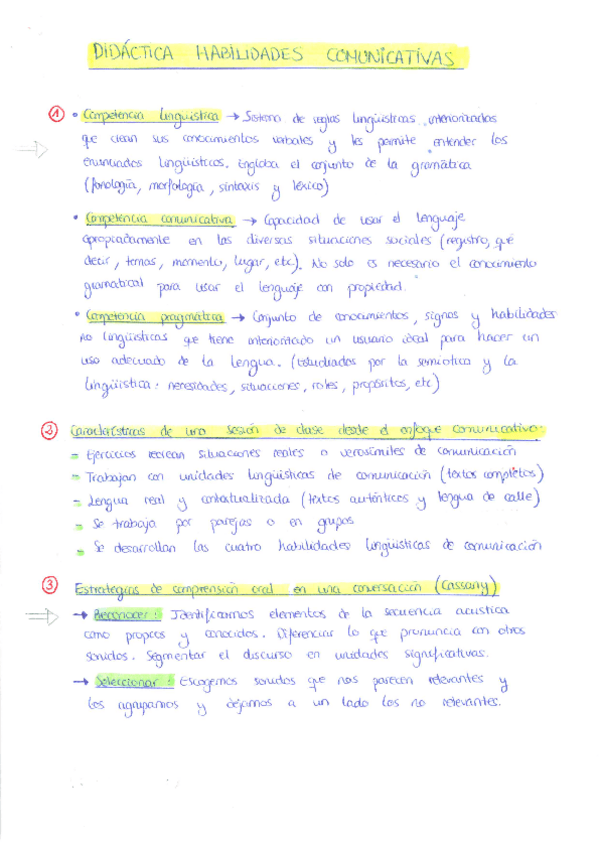 DIDÁCTICA HABILIDADES COMUNICATIVAS
① • Competencia lingüística → Sistema de reglas lingüísticas interiorizadas
que crean sus conocimientos verbales y les permite entender los
enunciados lingüísticos. Engloba el conjunto de la gramática
(fonología, morfología, sintaxis y léxico)
• Competencia comunicativa → Capacidad de usar el lenguaje
apropiadamente en las diversas situaciones sociales (registro, qué
decir, temas, momento, lugar, etc). No solo es necesario el conocimiento
gramatical para usar el lenguaje con propiedad.
• Competencia pragmática → Conjunto de conocimientos, signos y habilidades
no lingüísticas que tiene interiorizado un usuario ideal para hacer un
uso adecuado de la lengua. (Estudiados por la semiótica y la
lingüística: necesidades, situaciones, roles, propósitos, etc)
② Características de una sesión de clase desde el enfoque comunicativo:
- Ejercicios recrean situaciones reales o verosímiles de comunicación
- Trabajan con unidades lingüísticas de comunicación (textos completos)
- Lengua real y contextualizada (textos auténticos y lengua de calle)
- Se trabaja por parejas o en grupos
- Se desarrollan las cuatro habilidades lingüísticas de comunicación
③ Estrategias de comprensión oral en una conversación (Cassany)
→ Reconocer: Identificamos elementos de la secuencia acústica
como propios y conocidos. Diferenciar lo que pronuncia con otros
sonidos. Segmentar el discurso en unidades significativas.
→ Seleccionar: Escogemos sonidos que nos parecen relevantes y
los agrupamos y dejamos a un lado los no relevantes.